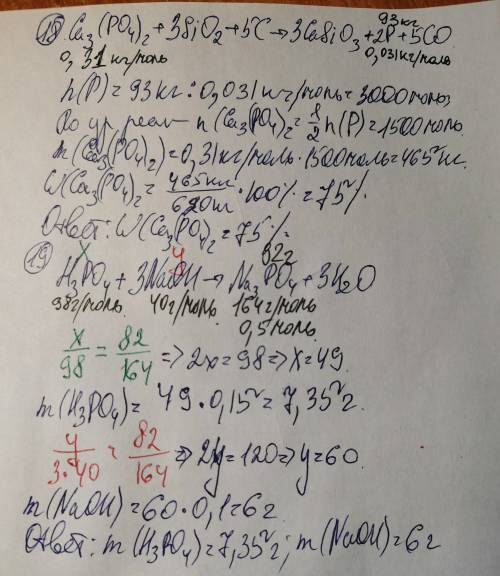 93кг
18) Ca₃(PO₄)₂ + 3SiO₂ + 5C → 3CaSiO₃ + 2P + 5CO
0,31кг/моль 0,031кг/моль
n(P) = 93кг : 0,031кг/моль = 3000моль
По ур. реак n(Ca₃(PO₄)₂) = 1/2 n(P) = 1500моль.
m(Ca₃(PO₄)₂) = 0,31кг/моль · 1500моль = 465кг.
W(Ca₃(PO₄)₂ = 465кг/620кг · 100% = 75%
Ответ: W(Ca₃(PO₄)₂ = 75%.
x y 82г
19) H₃PO₄ + 3NaOH → Na₃PO₄ + 3H₂O
98г/моль 40г/моль 164г/моль
0,5моль
x/98 = 82/164 => 2x = 98 => x = 49
m(H₃PO₄) = 49 · 0,15 = 7,35г.
y/3·40 = 82/164 => 2y = 120 => y = 60
m(NaOH) = 60 · 0,1 = 6г
Ответ: m(H₃PO₄) = 7,35г; m(NaOH) = 6г